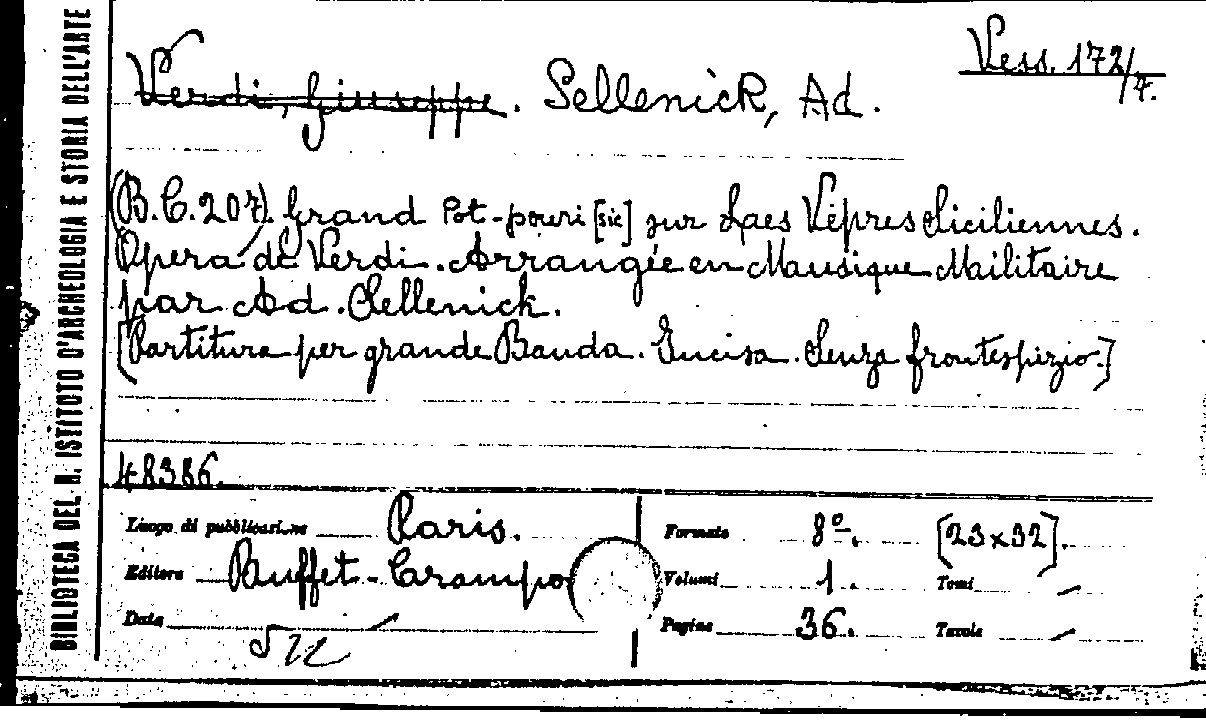 BIBLIOTECA DEL R. ISTITUTO D'ARCHEOLOGIA E STORIA DELL'ARTE
Vess. 172/7.
Verdi, Giuseppe. Sellenick, Ad.
(B.C.207). Grand Pot-pouri [sic] sur Laes Vêpres Siciliennes.
Opera de Verdi. Arrangée en Mausique Mailitaire
par Ad. Sellenick.
[Partitura per grande Banda. Incisa. Senza frontespizio.]
48386.
Luogo di pubblicazione Paris. Formato 8º. [23x32].
Editore Buffet-Crampo Volumi 1. Tomi —
Data — Pagine 36. Tavole —